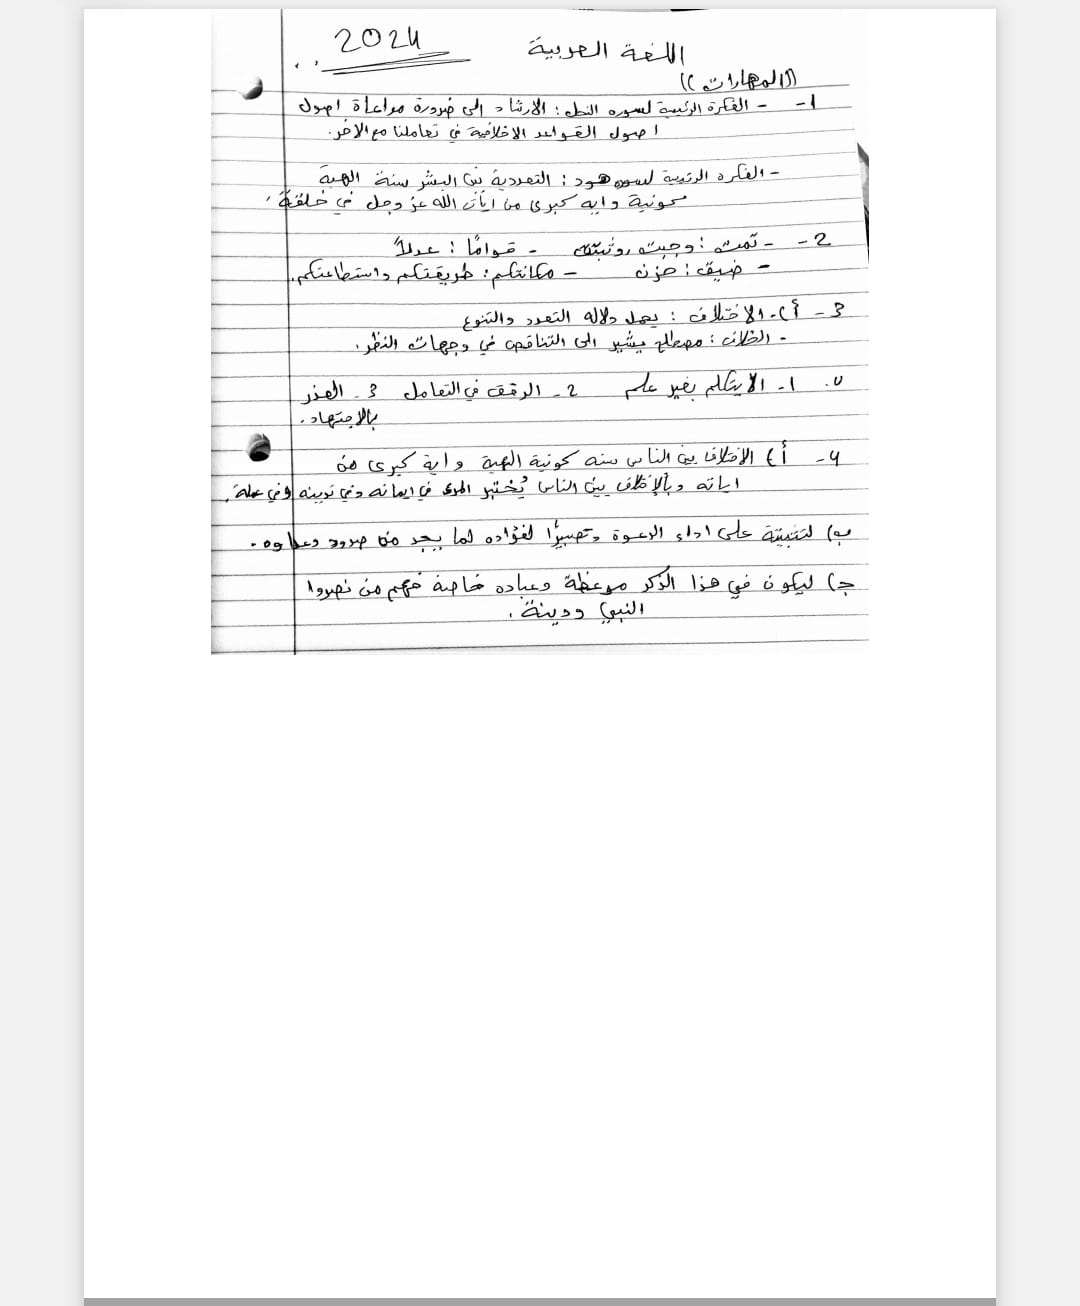 2024
اللغة العربية
((المهارات))
1- - الفكرة الرئيسية لسوره النحل: الارشاد الى ضرورة مراعاة اصول
اصول القواعد الاخلاقية في تعاملنا مع الاخر.
- الفكره الرئيسية لسوره هود: التعددية بين البشر سنة الهية
كونية وايه كبرى من ايات الله عز وجل في خلقة.
2- - تمت: وجبت وثبتت - قوامًا: عدلاً
- ضيق: حزن - مكانتكم: طريقتكم واستطاعتكم.
3- أ). الاختلاف: يحمل دلاله التعدد والتنوع
- الخلاف: مصطلح يشير الى التناقض في وجهات النظر.
ب. 1- الا يتكلم بغير علم 2- الرفق في التعامل 3- العذر
بالاجتهاد.
4- أ) الاختلاف بين الناس سنه كونية الهية واية كبرى من
اياته وبالإختلاف بين الناس يُختبر المرء في ايمانه وفي تدينه وفي عمله.
ب) لتثبيتة على اداء الدعوة وتصبيرًا لفؤاده لما يجد من صدود وعداوه.
ج) ليكون في هذا الذكر موعظة وعباده خاصة فهم من نصروا
النبي ودينة.